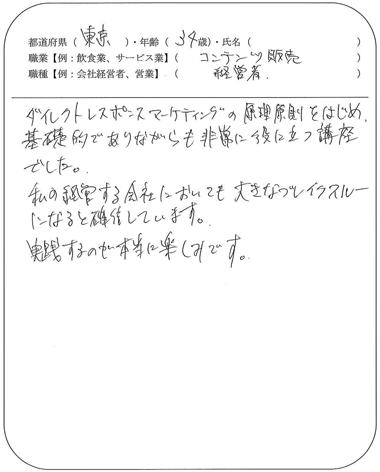 都道府県（東京）・年齢（34歳）・氏名（　　　）
職業【例：飲食業、サービス業】（コンテンツ販売）
職種【例：会社経営者、営業】（経営者.）
ダイレクトレスポンスマーケティングの原理原則をはじめ、
基礎的でありながらも非常に役に立つ講座
でした。
私の経営する会社においても大きなブレイクスルー
になると確信しています。
実践するのが本当に楽しみです。